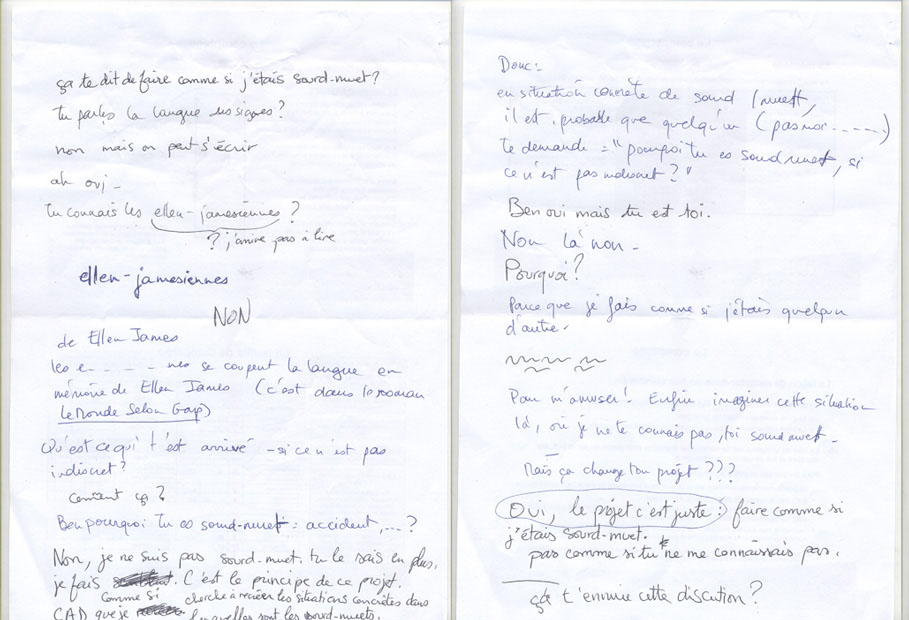 ça te dit de faire comme si j'étais sourd-muet?
tu parles la langue des signes?
non mais on peut s'écrir
ah oui -
tu connais les ellen-jamesiennes ?
? j'arrive pas à lire
ellen-jamesiennes
NON
de Ellen James
les e- - - - - nes se coupent la langue en
mémoire de Ellen James (c'est dans le roman
Le Monde Selon Garp)
Qu'est ce qui t'est arrivé - si ce n'est pas
indiscret?
comment ça ?
Ben pourquoi tu es sourd-muet : accident, ...?
Non, je ne suis pas sourd-muet. tu le sais en plus,
je fais comme si. C'est le principe de ce projet.
CAD que je cherche à recréer les situations concrètes dans
lesquelles sont les sourds-muets.
Donc :
en situation concrète de sourd / muet,
il est probable que quelqu'un (pas moi .....)
te demande = "pourquoi tu es sourd muet, si
ce n'est pas indiscret ? "
Ben oui mais tu est toi.
Non là non -
Pourquoi?
Parce que je fais comme si j'étais quelqu'un
d'autre.
Pour m'amuser! Enfin imaginer cette situation
là, où je ne te connais pas, toi sourd muet -
Mais ça change ton projet ???
Oui, le projet c'est juste : faire comme si
j'étais sourd-muet.
pas comme si tu ne me connaissais pas.
ça t'ennuie cette discution ?